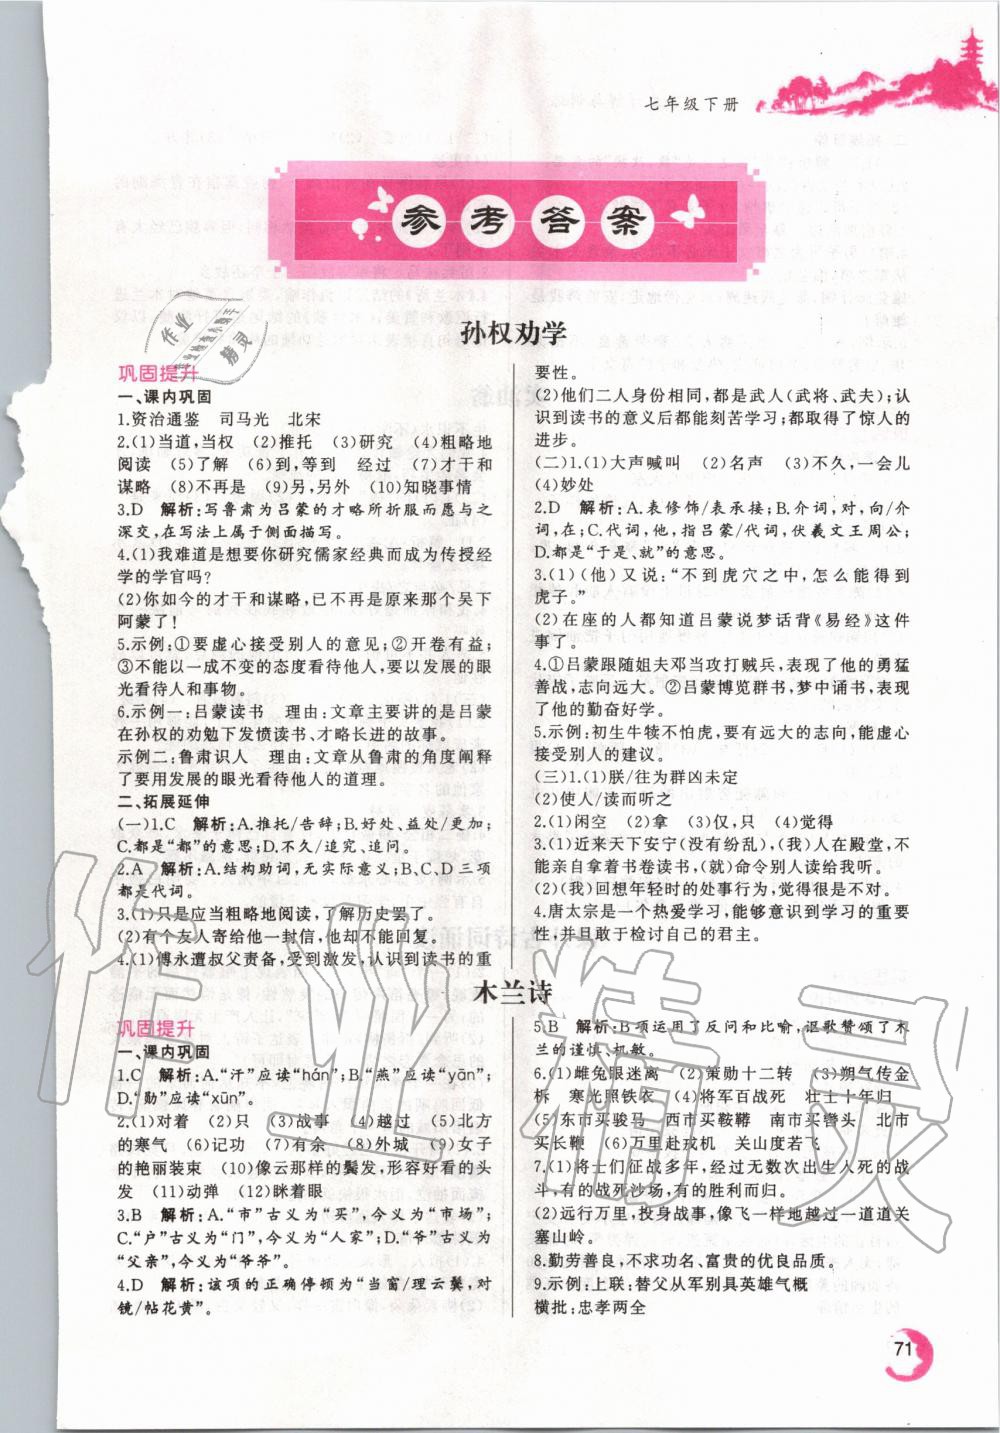 七年级下册
参考答案
孙权劝学
巩固提升
一、课内巩固
1.资治通鉴 司马光 北宋
2.(1)当道,当权 (2)推托 (3)研究 (4)粗略地
阅读 (5)了解 (6)到,等到 经过 (7)才干和
谋略 (8)不再是 (9)另,另外 (10)知晓事情
3.D 解析:写鲁肃为吕蒙的才略所折服而愿与之
深交,在写法上属于侧面描写。
4.(1)我难道是想要你研究儒家经典而成为传授经
学的学官吗?
(2)你如今的才干和谋略,已不再是原来那个吴下
阿蒙了!
5.示例:①要虚心接受别人的意见;②开卷有益;
③不能以一成不变的态度看待他人,要以发展的眼
光看待人和事物。
6.示例一:吕蒙读书 理由:文章主要讲的是吕蒙
在孙权的劝勉下发愤读书、才略长进的故事。
示例二:鲁肃识人 理由:文章从鲁肃的角度阐释了
要用发展的眼光看待他人的道理。
二、拓展延伸
(一)1.C 解析:A.推托/告辞;B.好处、益处/更加;
C.都是“都”的意思;D.不久/追究、追问。
2.A 解析:A.结构助词,无实际意义;B、C、D三项
都是代词。
3.(1)只是应当粗略地阅读,了解历史罢了。
(2)有个友人寄给他一封信,他却不能回复。
4.(1)傅永遭叔父责备,受到激发,认识到读书的重
要性。
(2)他们二人身份相同,都是武人(武将、武夫);认
识到读书的意义后都能刻苦学习;都取得了惊人的
进步。
(二)1.(1)大声喊叫 (2)名声 (3)不久,一会儿
(4)妙处
2.D 解析:A.表修饰/表承接;B.介词,对,向/介
词,在;C.代词,他,指吕蒙/代词,伏羲文王周公;
D.都是“于是、就”的意思。
3.(1)(他)又说:“不到虎穴之中,怎么能得到
虎子。”
(2)在座的人都知道吕蒙说梦话背《易经》这件
事情。
4.①吕蒙跟随姐夫邓当攻打贼兵,表现了他的勇猛
善战,志向远大。②吕蒙博览群书,梦中诵书,表现
了他的勤奋好学。
5.示例:初生牛犊不怕虎,要有远大的志向,能虚心
接受别人的建议。
(三)1.(1)朕/往为群凶未定
(2)使人/读而听之
2.(1)闲空 (2)拿 (3)仅,只 (4)觉得
3.(1)近来天下安宁(没有纷乱),(我)人在殿堂,不
能亲自拿着书卷读书,(就)命令别人读给我听。
(2)(我)回想年轻时的处事行为,觉得很是不对。
4.唐太宗是一个热爱学习,能够意识到学习的重要
性,并且敢于检讨自己的君主。
木兰诗
巩固提升
一、课内巩固
1.C 解析:A.“汗”应读“hán”;B.“燕”应读“yān”;
D.“勋”应读“xūn”。
2.(1)对着 (2)只 (3)战事 (4)越过 (5)北方
的寒气 (6)记功 (7)有余 (8)外城 (9)女子
的艳丽装束 (10)像云那样的鬓发,形容好看的头
发 (11)动弹 (12)眯着眼
3.B 解析:A.“市”古义为“买”,今义为“市场”;
C.“户”古义为“门”,今义为“人家”;D.“爷”古义为
“父亲”,今义为“爷爷”。
4.D 解析:该项的正确停顿为“当窗/理云鬓,对
镜/帖花黄”。
5.B 解析:B项运用了反问和比喻,讴歌赞颂了木
兰的谨慎、机敏。
6.(1)雌兔眼迷离 (2)策勋十二转 (3)朔气传金
柝 寒光照铁衣 (4)将军百战死 壮士十年归
(5)东市买骏马 西市买鞍鞯 南市买辔头 北市
买长鞭 (6)万里赴戎机 关山度若飞
7.(1)将士们征战多年,经过无数次出生入死的战
斗,有的战死沙场,有的胜利而归。
(2)远行万里,投身战事,像飞一样地越过一道道关
塞山岭。
8.勤劳善良,不求功名、富贵的优良品质。
9.示例:上联:替父从军别具英雄气概
横批:忠孝两全
71
作业精灵